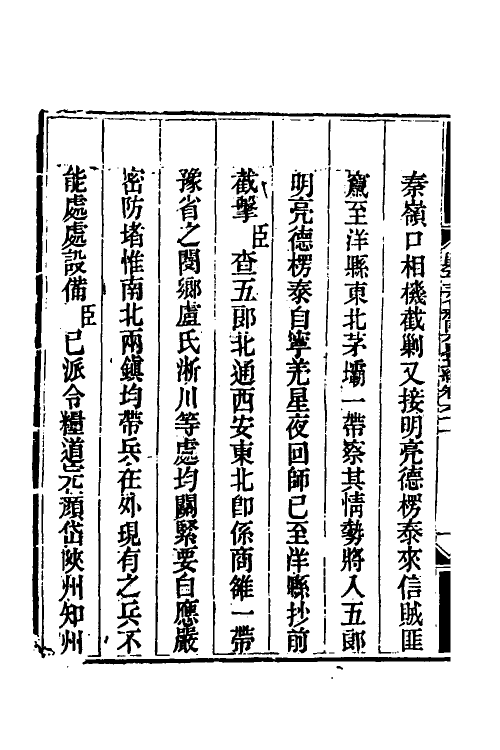 秦嶺口相機截剿又接明亮德楞泰來信賊匪
竄至洋縣東北茅壩一帶察其情勢將入五郎
明亮德楞泰自寧羌星夜回師已至洋縣抄前
截擊臣查五郎北通西安東北卽係商雒一帶
豫省之閿鄉盧氏淅川等處均關緊要自應嚴
密防堵惟南北兩鎭均帶兵在外現有之兵不
能處處設備臣已派令糧道完顏岱陝州知州